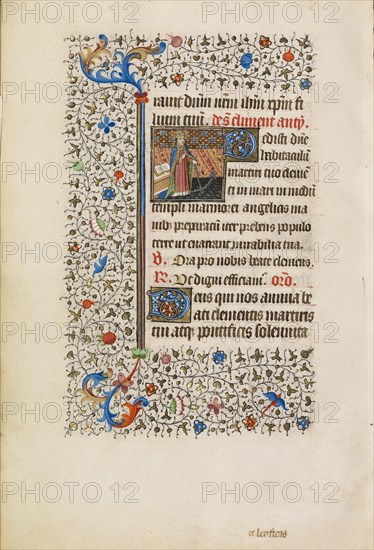 PHOTO 12 PHOTO 12 PHOTO 12
rarunt dnm nrm ihm xpm fi
lium eius. De s. climent anty.
Dedisti dne
habitaculu
martiri tuo clemē
ti in mari in modū
templi marmorei angelicis ma
nib preparatū iter prebens populo
terre ut enarrant mirabilia tua.
V. Ora pro nobis beate clemens.
R. Ut digni efficiam. oro.
Deus qui nos annua be
ati clementis martiris
tui atq pontificis solennita